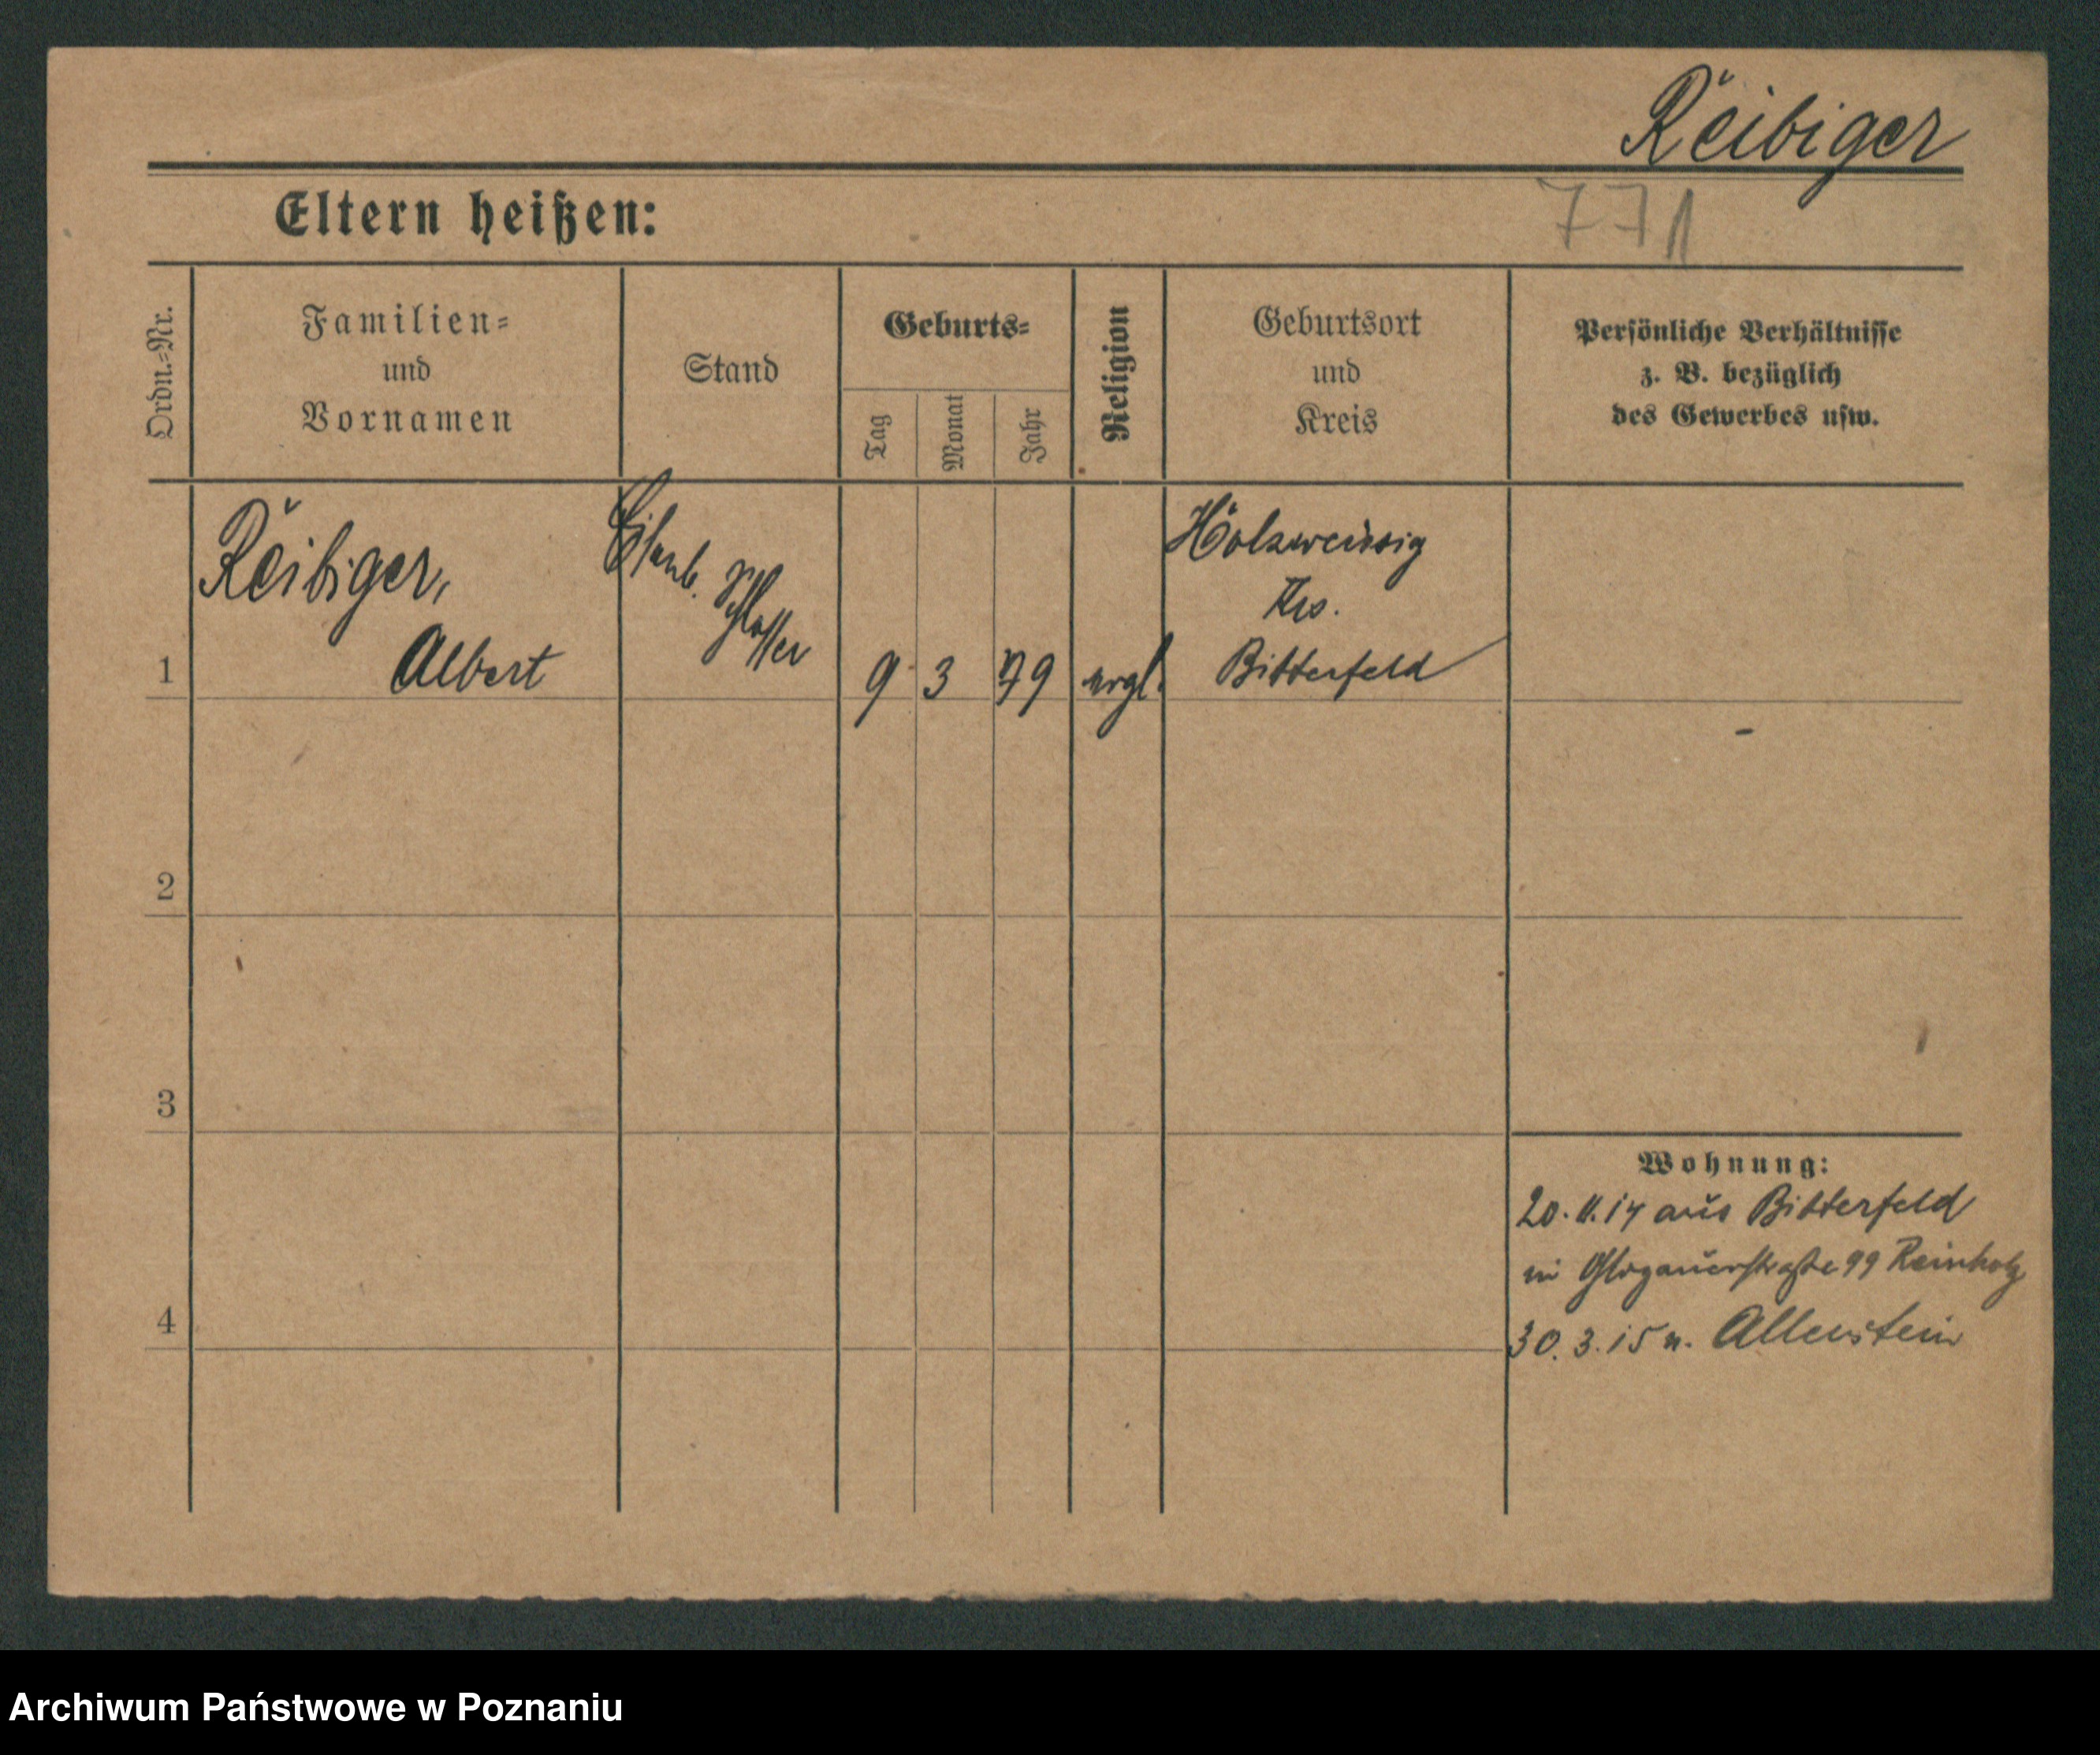 Reibiger
771
Eltern heißen:
Ordn.-Nr.
Familien-
und
Vornamen
Stand
Geburts-
Tag
Monat
Jahr
Religion
Geburtsort
und
Kreis
Persönliche Verhältnisse
z. B. bezüglich
des Gewerbes usw.
Reibiger,
Albert
Eisenb.
Schlosser
9. 3 79
evgl.
Holzweissig
Krs.
Bitterfeld
1
2
3
4
Wohnung:
20.11.14 aus Bitterfeld
Glogauerstraße 99 Reinholz
30.3.15 n. Allenstein
Archiwum Państwowe w Poznaniu